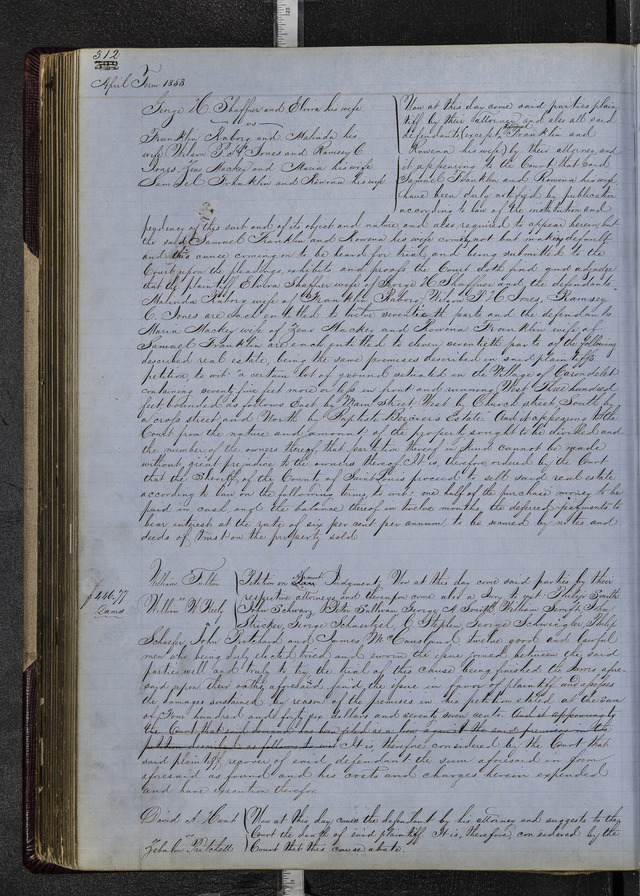 312
April Term 1853
George H. Shaffner and Elvira his wife
vs
Franklin Raborg and Malinda his
wife, Wilson P. H. Jones and Ramsey C.
Jones, Zeno Mackey and Maria his wife
Samuel Franklin and Rowena his wife
Now at this day come said parties plain
tiff by their attorney and also all said
defendants (except Samuel Franklin and
Rowena his wife) by their attorney and
it appearing to the Court that said
Samuel Franklin and Rowena his wife
have been duly notified by publication
according to law of the institution and
pendency of this suit and of its object and nature and also required to appear herein, but
the said Samuel Franklin and Rowena his wife come not but making default
and this cause coming on to be heard for trial, and being submitted to the
Court upon the pleadings, exhibits and proofs the Court doth find and adjudge
that the plaintiff Elvira Shaffner wife of George H Shaffner and the defendants
Malinda Raborg wife of Franklin Raborg, Wilson P. H. Jones, Ramsey
C. Jones are each entitled to twelve seventieth parts and the defendants
Maria Mackey wife of Zeno Mackey and Rowena Franklin wife of
Samuel Franklin are each entitled to eleven seventieth parts of the following
described real estate, being the same premises described in said plaintiffs
petition, to wit "a certain lot of ground situated in the Village of Carondelet
containing seventy five feet more or less in front and running West Three hundred
feet, bounded as follows East by Main Street West by Church street South by
a cross street and North by Baptiste Estate" And it appearing to the
Court from the nature and amount of the property sought to be divided and
the number of the owners thereof that partition thereof in kind cannot be made
without great prejudice to the owners thereof. It is, therefore ordered by the Court
that the Sheriff of the County of Saint Louis proceed to sell said real estate
according to law on the following terms to wit: one half of the purchase money to be
paid in cash, and the balance thereof in twelve months, the deferred payments to
bear interest at the rate of six per cent per annum to be secured by notes and
deeds of trust on the property sold
$446.77
William Tutton
vs
William W. Reily
Petition on Judgment. Now at this day come said parties by their
respective attorneys and thereupon come also a Jury to wit Philip Smith
John Schwarz, Peter Sullivan, George A. Smith, William Temple, John
Stricker, George Schnertzel, G Stephen, George Schweigler Philip
Schaefer, John Pritchard and James McCausland, twelve good and lawful
men who being duly elected tried and sworn the issue joined between the said
parties well and truly to try, the trial of this cause being finished the Jurors afore
said upon their oaths aforesaid find the issue in favor of plaintiff and assess
the damages sustained by reason of the premises in his petition stated at the sum
of Four hundred and forty six dollars and seventy seven cents. And it appearing to
the Court that said
It is, therefore considered by the Court that
said plaintiff recover of said defendant the sum aforesaid in form
aforesaid as found and his costs and charges herein expended
and have execution therefor.
David A. Hunt
vs
Zebulon Pritchett
Now at this day comes the defendant by his attorney and suggests to the
Court the death of said plaintiff. It is, therefore, considered by the
Court that this cause abate.